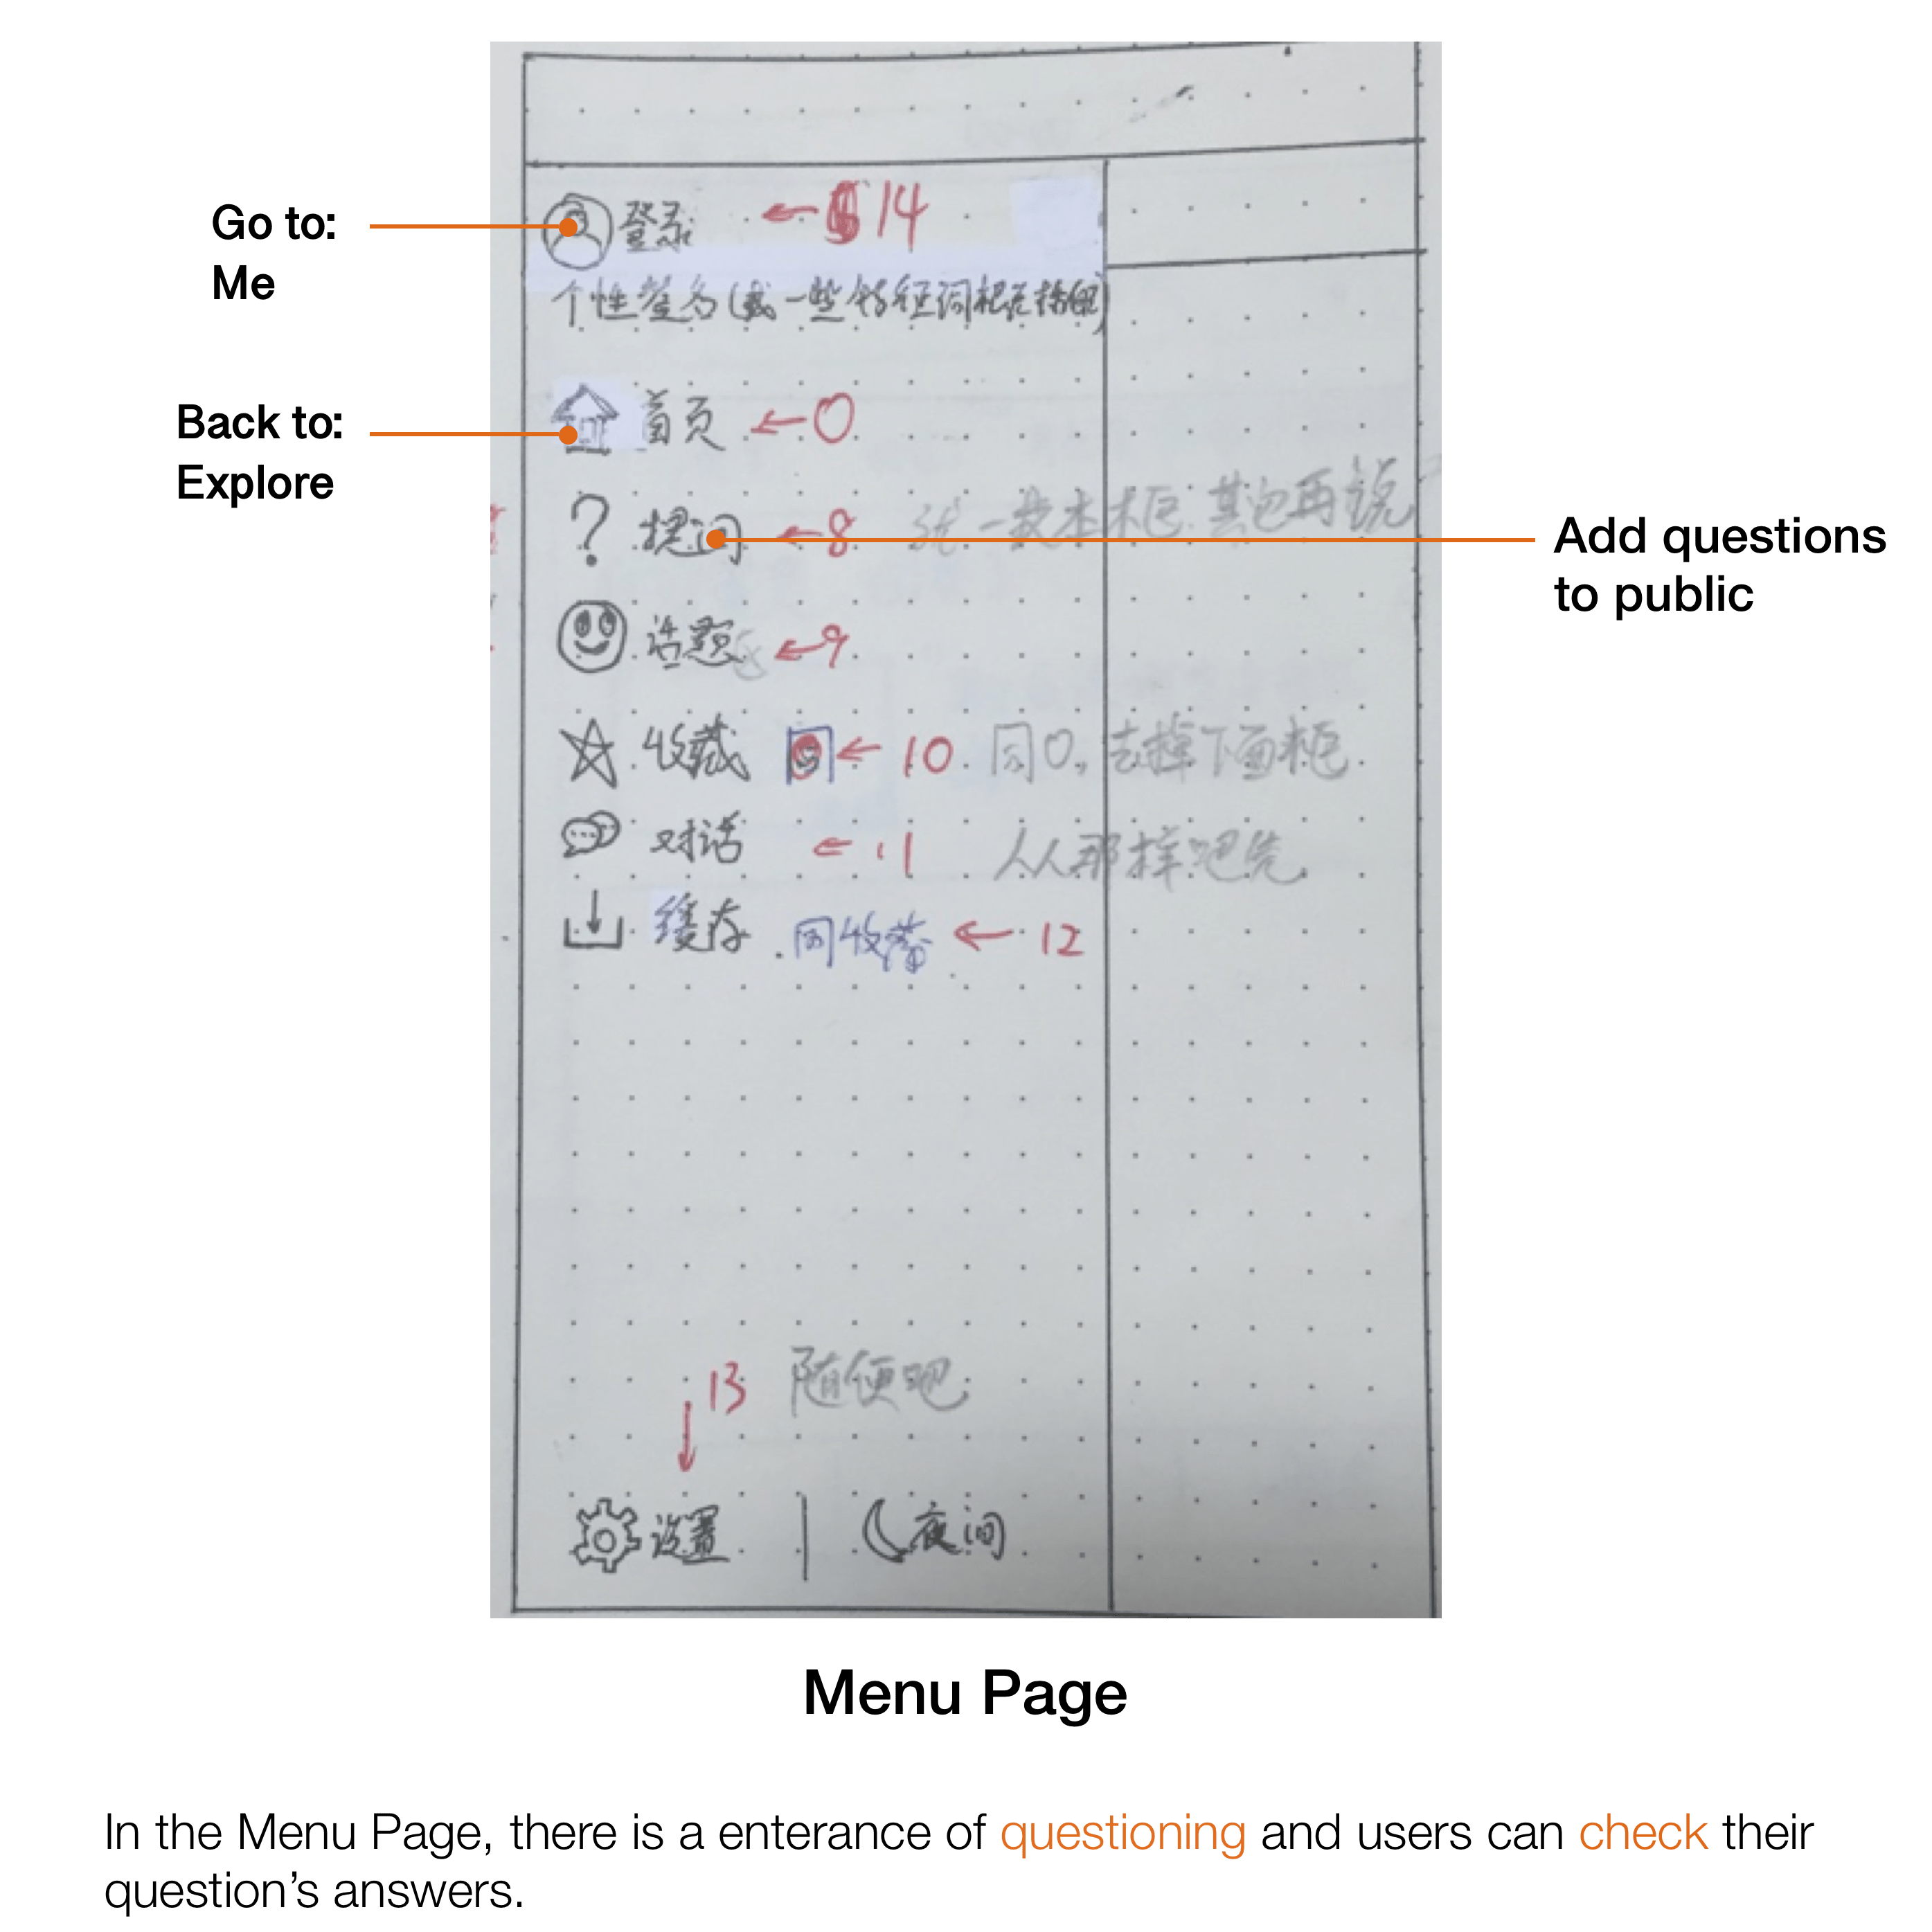 Go to:
Me
登录 ← 14
个性签名(或一些特征词标签括起)
Back to:
Explore
首页 ← 0
? 提问 ← 8 一段本框 其它再说
Add questions
to public
话题 ← 9
收藏 同 ← 10 同0,去掉下面框
对话 ← 11 人人那样吧先
缓存 同收藏 ← 12
13 随便吧
设置 | 夜间
Menu Page
In the Menu Page, there is a enterance of questioning and users can check their
question's answers.